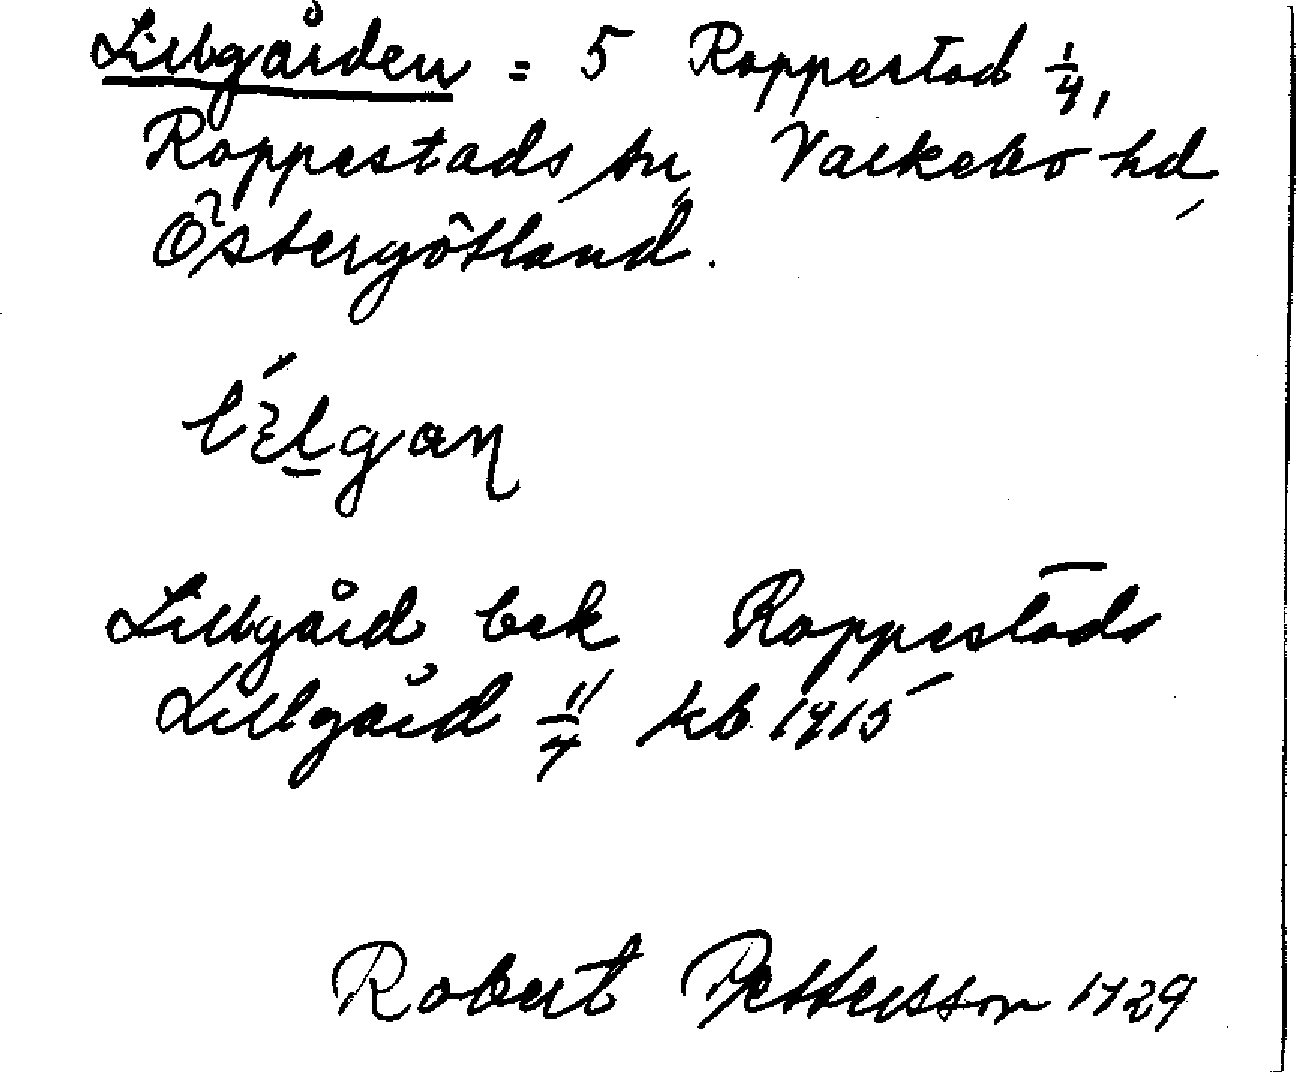 Lillgården = 5 Rappestad 1/4,
Rappestads sn, Valkebo hd,
Östergötland.
Lillgård bek Rappestads
Lillgård 11/4 kb 1915
Robert Pettersson 1929